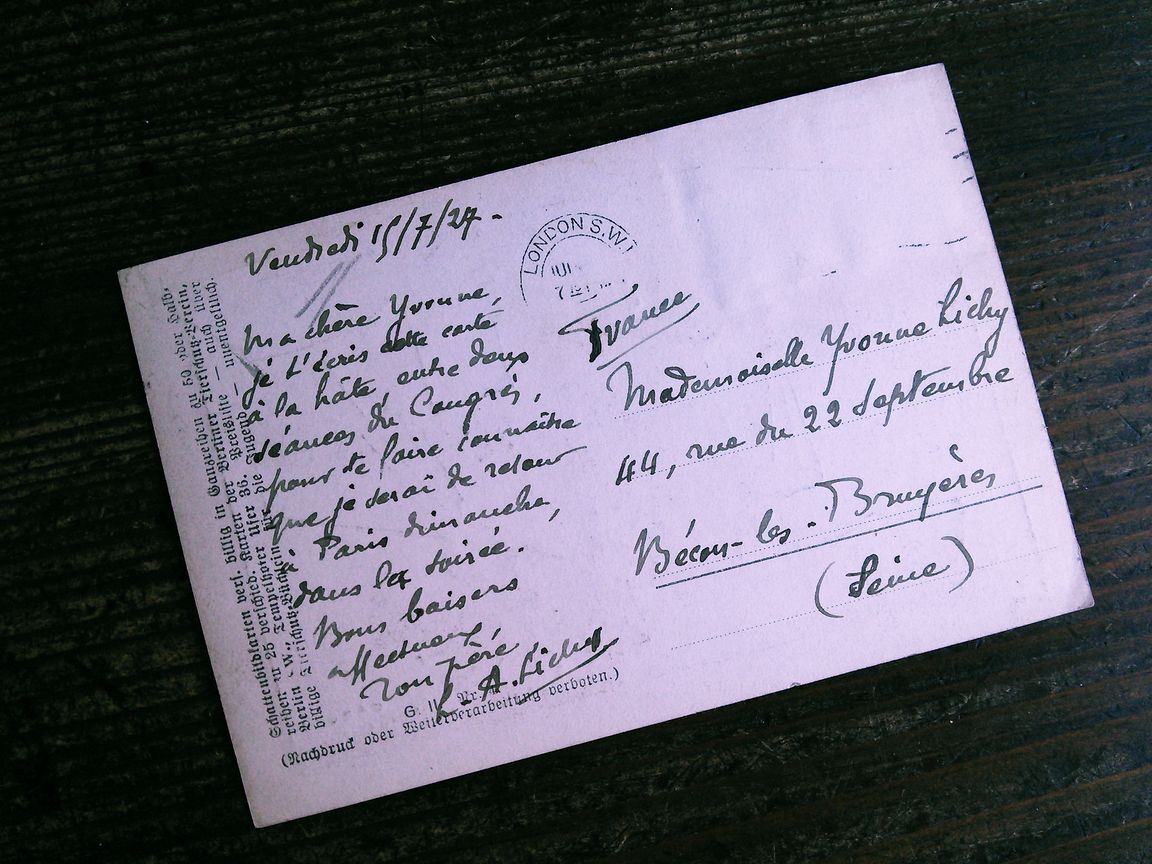 Vendredi 15/7/27 -
Ma chère Yvonne,
je t'écris cette carte
à la hâte, entre deux
séances du Congrès,
pour te faire connaître
que je serai de retour
à Paris dimanche,
dans la soirée.
Bons baisers
affectueux,
Ton père
A. Lichy
LONDON S.W.1
France
Mademoiselle Yvonne Lichy
44, rue du 22 Septembre
Bécon-les-Bruyères
(Seine)
Schattenbildkarten verj. billig in Ganzreihen zu 50 oder Halb-
reihen zu 25 verschied. Karten der Berliner Tierschutz-Verein,
Berlin SW. 11, Tempelhofer Ufer 36. Preisliste — auch über
billige Tierschutz-Büchlein für die Jugend — unentgeltlich.
(Nachdruck oder Weiterverarbeitung verboten.)